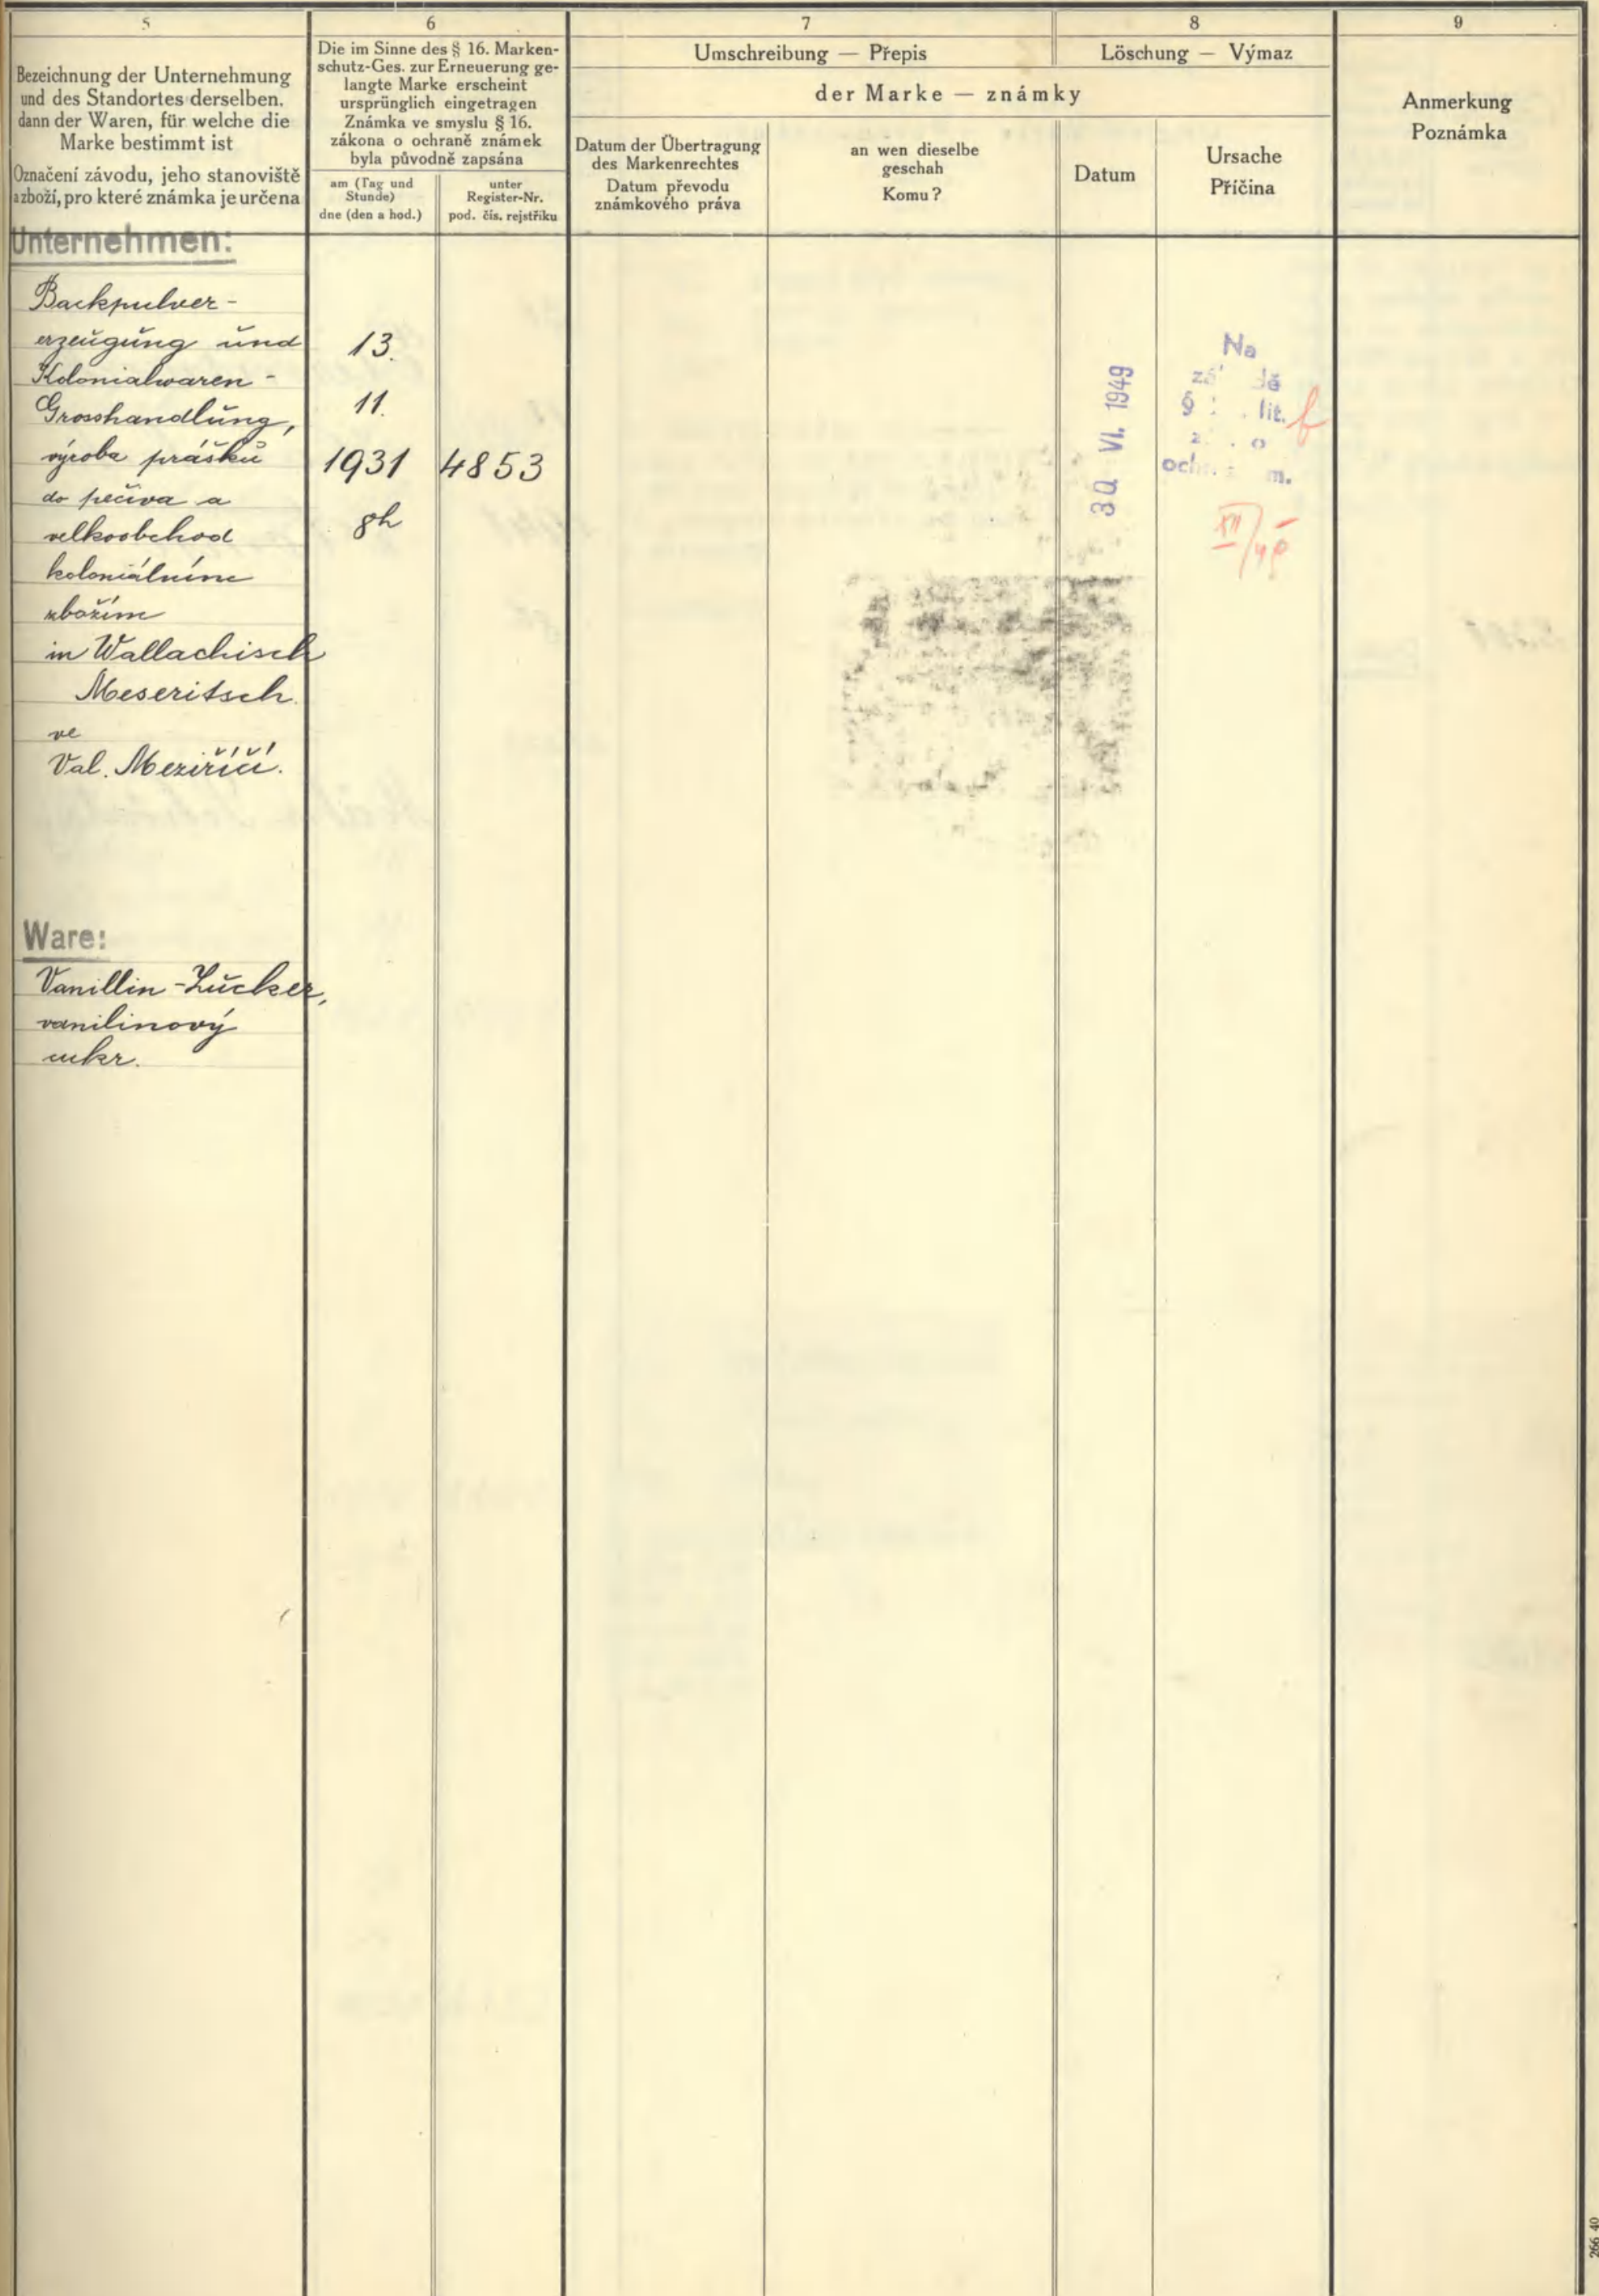 5
Bezeichnung der Unternehmung
und des Standortes derselben,
dann der Waren, für welche die
Marke bestimmt ist
Označení závodu, jeho stanoviště
a zboží, pro které známka je určena
6
Die im Sinne des § 16. Marken-
schutz-Ges. zur Erneuerung ge-
langte Marke erscheint
ursprünglich eingetragen
Známka ve smyslu § 16.
zákona o ochraně známek
byla původně zapsána
am (Tag und
Stunde)
dne (den a hod.)
unter
Register-Nr.
pod. čís. rejstříku
7
Umschreibung — Přepis
8
Löschung — Výmaz
der Marke — známky
Datum der Übertragung
des Markenrechtes
Datum převodu
známkového práva
an wen dieselbe
geschah
Komu?
Datum
Ursache
Příčina
9
Anmerkung
Poznámka
Unternehmen:
Backpulver-
erzeugung und
Kolonialwaren-
Grosshandlung,
výroba prášků
do pečiva a
velkoobchod
koloniálním
zbožím
in Wallachisch
Meseritsch.
ve
Val. Meziříčí.
Ware:
Vanillin-Zucker,
vanilinový
cukr.
13.
11.
1931
8h
4853
30 VI. 1949
Na
§ lit. f
o
266 40